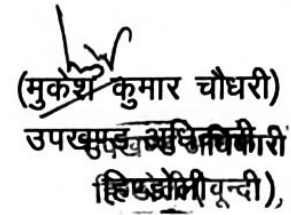 (मुकेश कुमार चौधरी)
उपखण्ड अधिकारी
हिण्डोली (बून्दी),